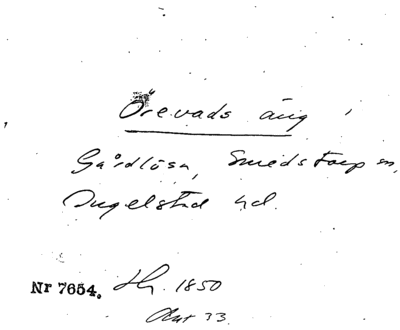 Örevads äng
Gårdlösa, Smedstorp sn,
Ingelstad hd.
Nr 7654. Hs. 1850
Akt 33.